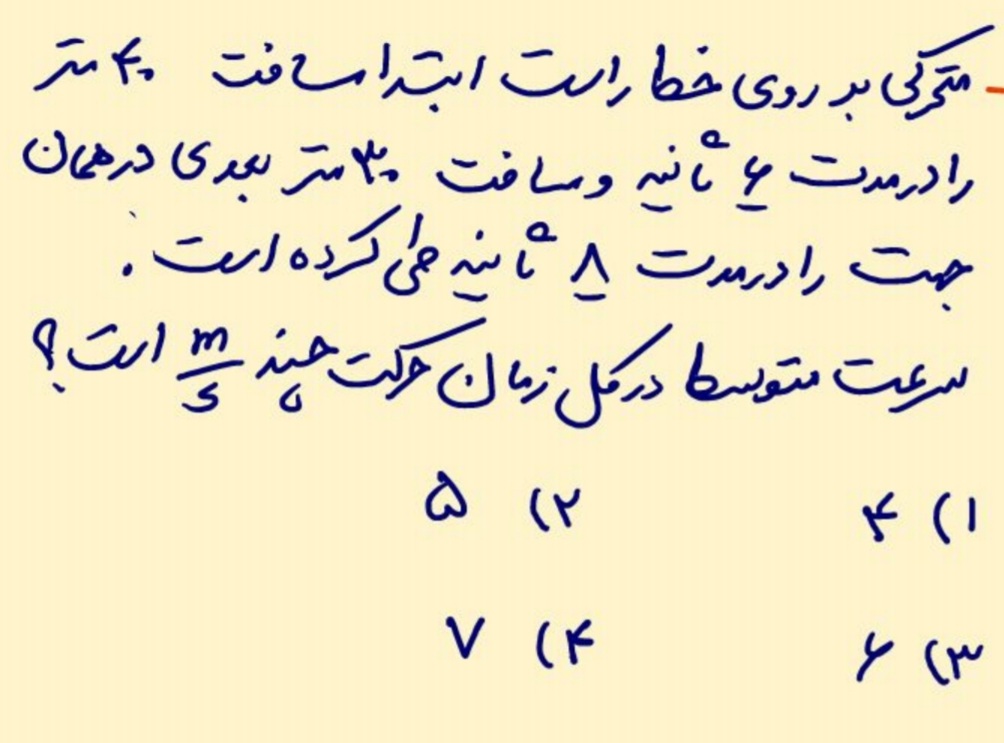 متحرکی بر روی خط راست ابتدا مسافت ۴۰ متر
را در مدت ۶ ثانیه و مسافت ۳۰ متر بعدی در همان
جهت را در مدت ۸ ثانیه طی کرده است .
سرعت متوسط در کل زمان حرکت چند m/s است؟
۱) ۴ ۲) ۵
۳) ۶ ۴) ۷